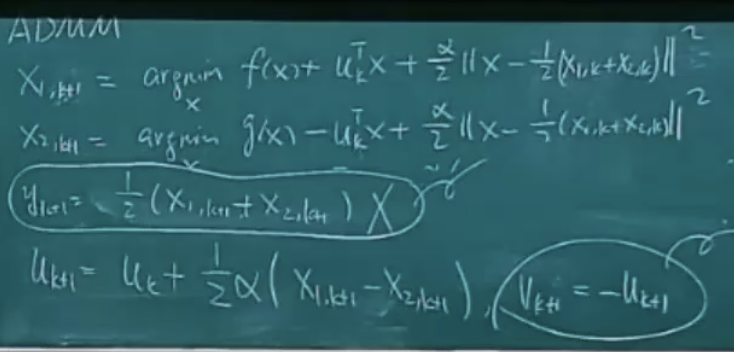 ADMM
X_{1,k+1} = argmin_x f(x) + u_k^T x + α/2 ||x - 1/2(x_{1,k} + x_{2,k})||^2
X_{2,k+1} = argmin_x g(x) - u_k^T x + α/2 ||x - 1/2(x_{1,k} + x_{2,k})||^2
y_{k+1} = 1/2 (X_{1,k+1} + X_{2,k+1}) X
u_{k+1} = u_k + 1/2 α (X_{1,k+1} - X_{2,k+1}), V_{k+1} = -u_{k+1}